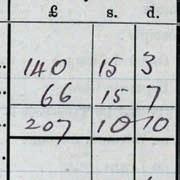 £ s. d.
140 15 3
66 15 7
207 10 10